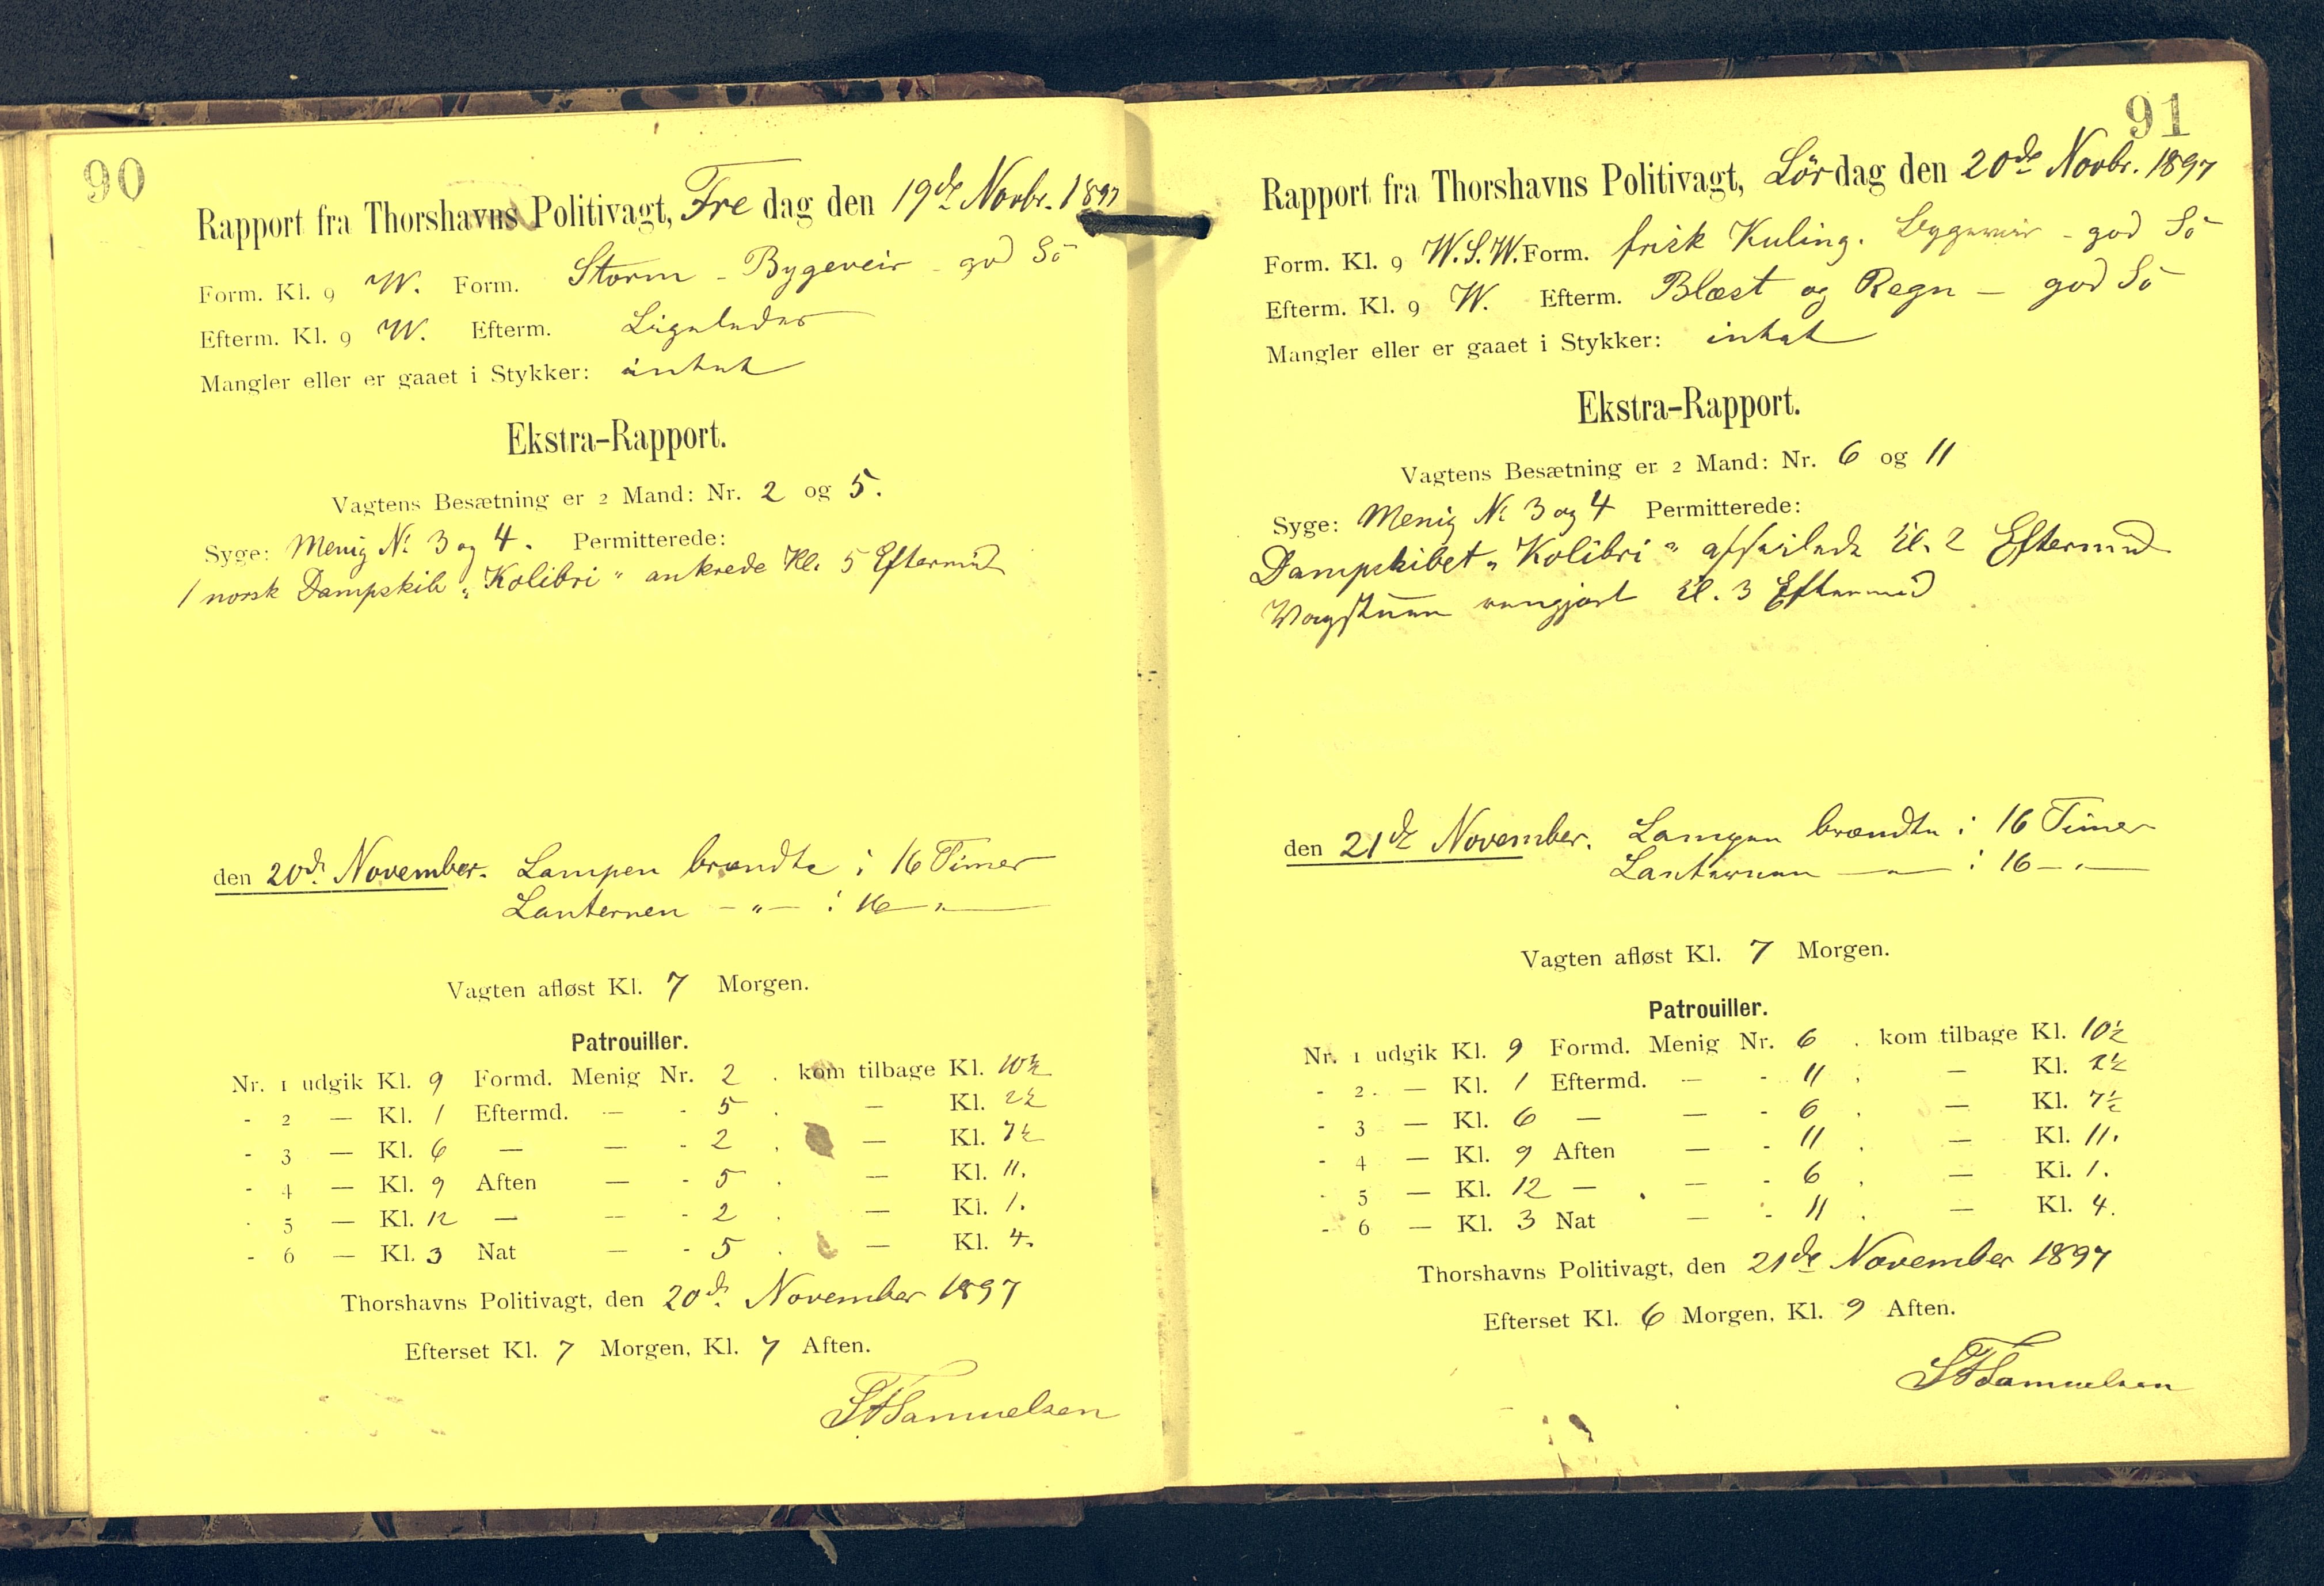 90
Rapport fra Thorshavns Politivagt, Fredag den 19de Novbr. 1897
Form. Kl. 9 W. Form. Storm - Bygeveir - god Sö
Efterm. Kl. 9 W. Efterm. Ligeledes
Mangler eller er gaaet i Stykker: intet
Ekstra-Rapport.
Vagtens Besætning er 2 Mand: Nr. 2 og 5.
Syge: Menig No 3 og 4. Permitterede:
1 norsk Dampskib „Kolibri“ ankrede Kl. 5 Eftermid
den 20de November. Lampen brændte i 16 Timer
Lanternen — „ — i 16 — „ —
Vagten afløst Kl. 7 Morgen.
Patrouiller.
Nr. 1 udgik Kl. 9 Formd. Menig Nr. 2 . kom tilbage Kl. 10½
- 2 — Kl. 1 Eftermd. — - 5 . — Kl. 2½
- 3 — Kl. 6 — — - 2 . — Kl. 7½
- 4 — Kl. 9 Aften — - 5 . — Kl. 11.
- 5 — Kl. 12 — — - 2 . — Kl. 1.
- 6 — Kl. 3 Nat — - 5 . — Kl. 4.
Thorshavns Politivagt, den 20de November 1897
Efterset Kl. 7 Morgen, Kl. 7 Aften.
Samuelsen
91
Rapport fra Thorshavns Politivagt, Lördag den 20de Novbr. 1897
Form. Kl. 9 W.S.W. Form. frisk Kuling. Bygeveir - god Sö
Efterm. Kl. 9 W. Efterm. Blæst og Regn — god Sö
Mangler eller er gaaet i Stykker: intet
Ekstra-Rapport.
Vagtens Besætning er 2 Mand: Nr. 6 og 11
Syge: Menig No 3 og 4 Permitterede:
Dampskibet „Kolibri“ afseilede Kl. 2 Eftermid
Vagtstuen rengjort Kl. 3 Eftermid
den 21de November. Lampen brændte i 16 Timer
Lanternen — „ — i 16 — „ —
Vagten afløst Kl. 7 Morgen.
Patrouiller.
Nr. 1 udgik Kl. 9 Formd. Menig Nr. 6 . kom tilbage Kl. 10½
- 2 — Kl. 1 Eftermd. — - 11 . — Kl. 2½
- 3 — Kl. 6 — — - 6 . — Kl. 7½
- 4 — Kl. 9 Aften — - 11 . — Kl. 11.
- 5 — Kl. 12 — — - 6 . — Kl. 1.
- 6 — Kl. 3 Nat — - 11 . — Kl. 4.
Thorshavns Politivagt, den 21de November 1897
Efterset Kl. 6 Morgen, Kl. 9 Aften.
Samuelsen